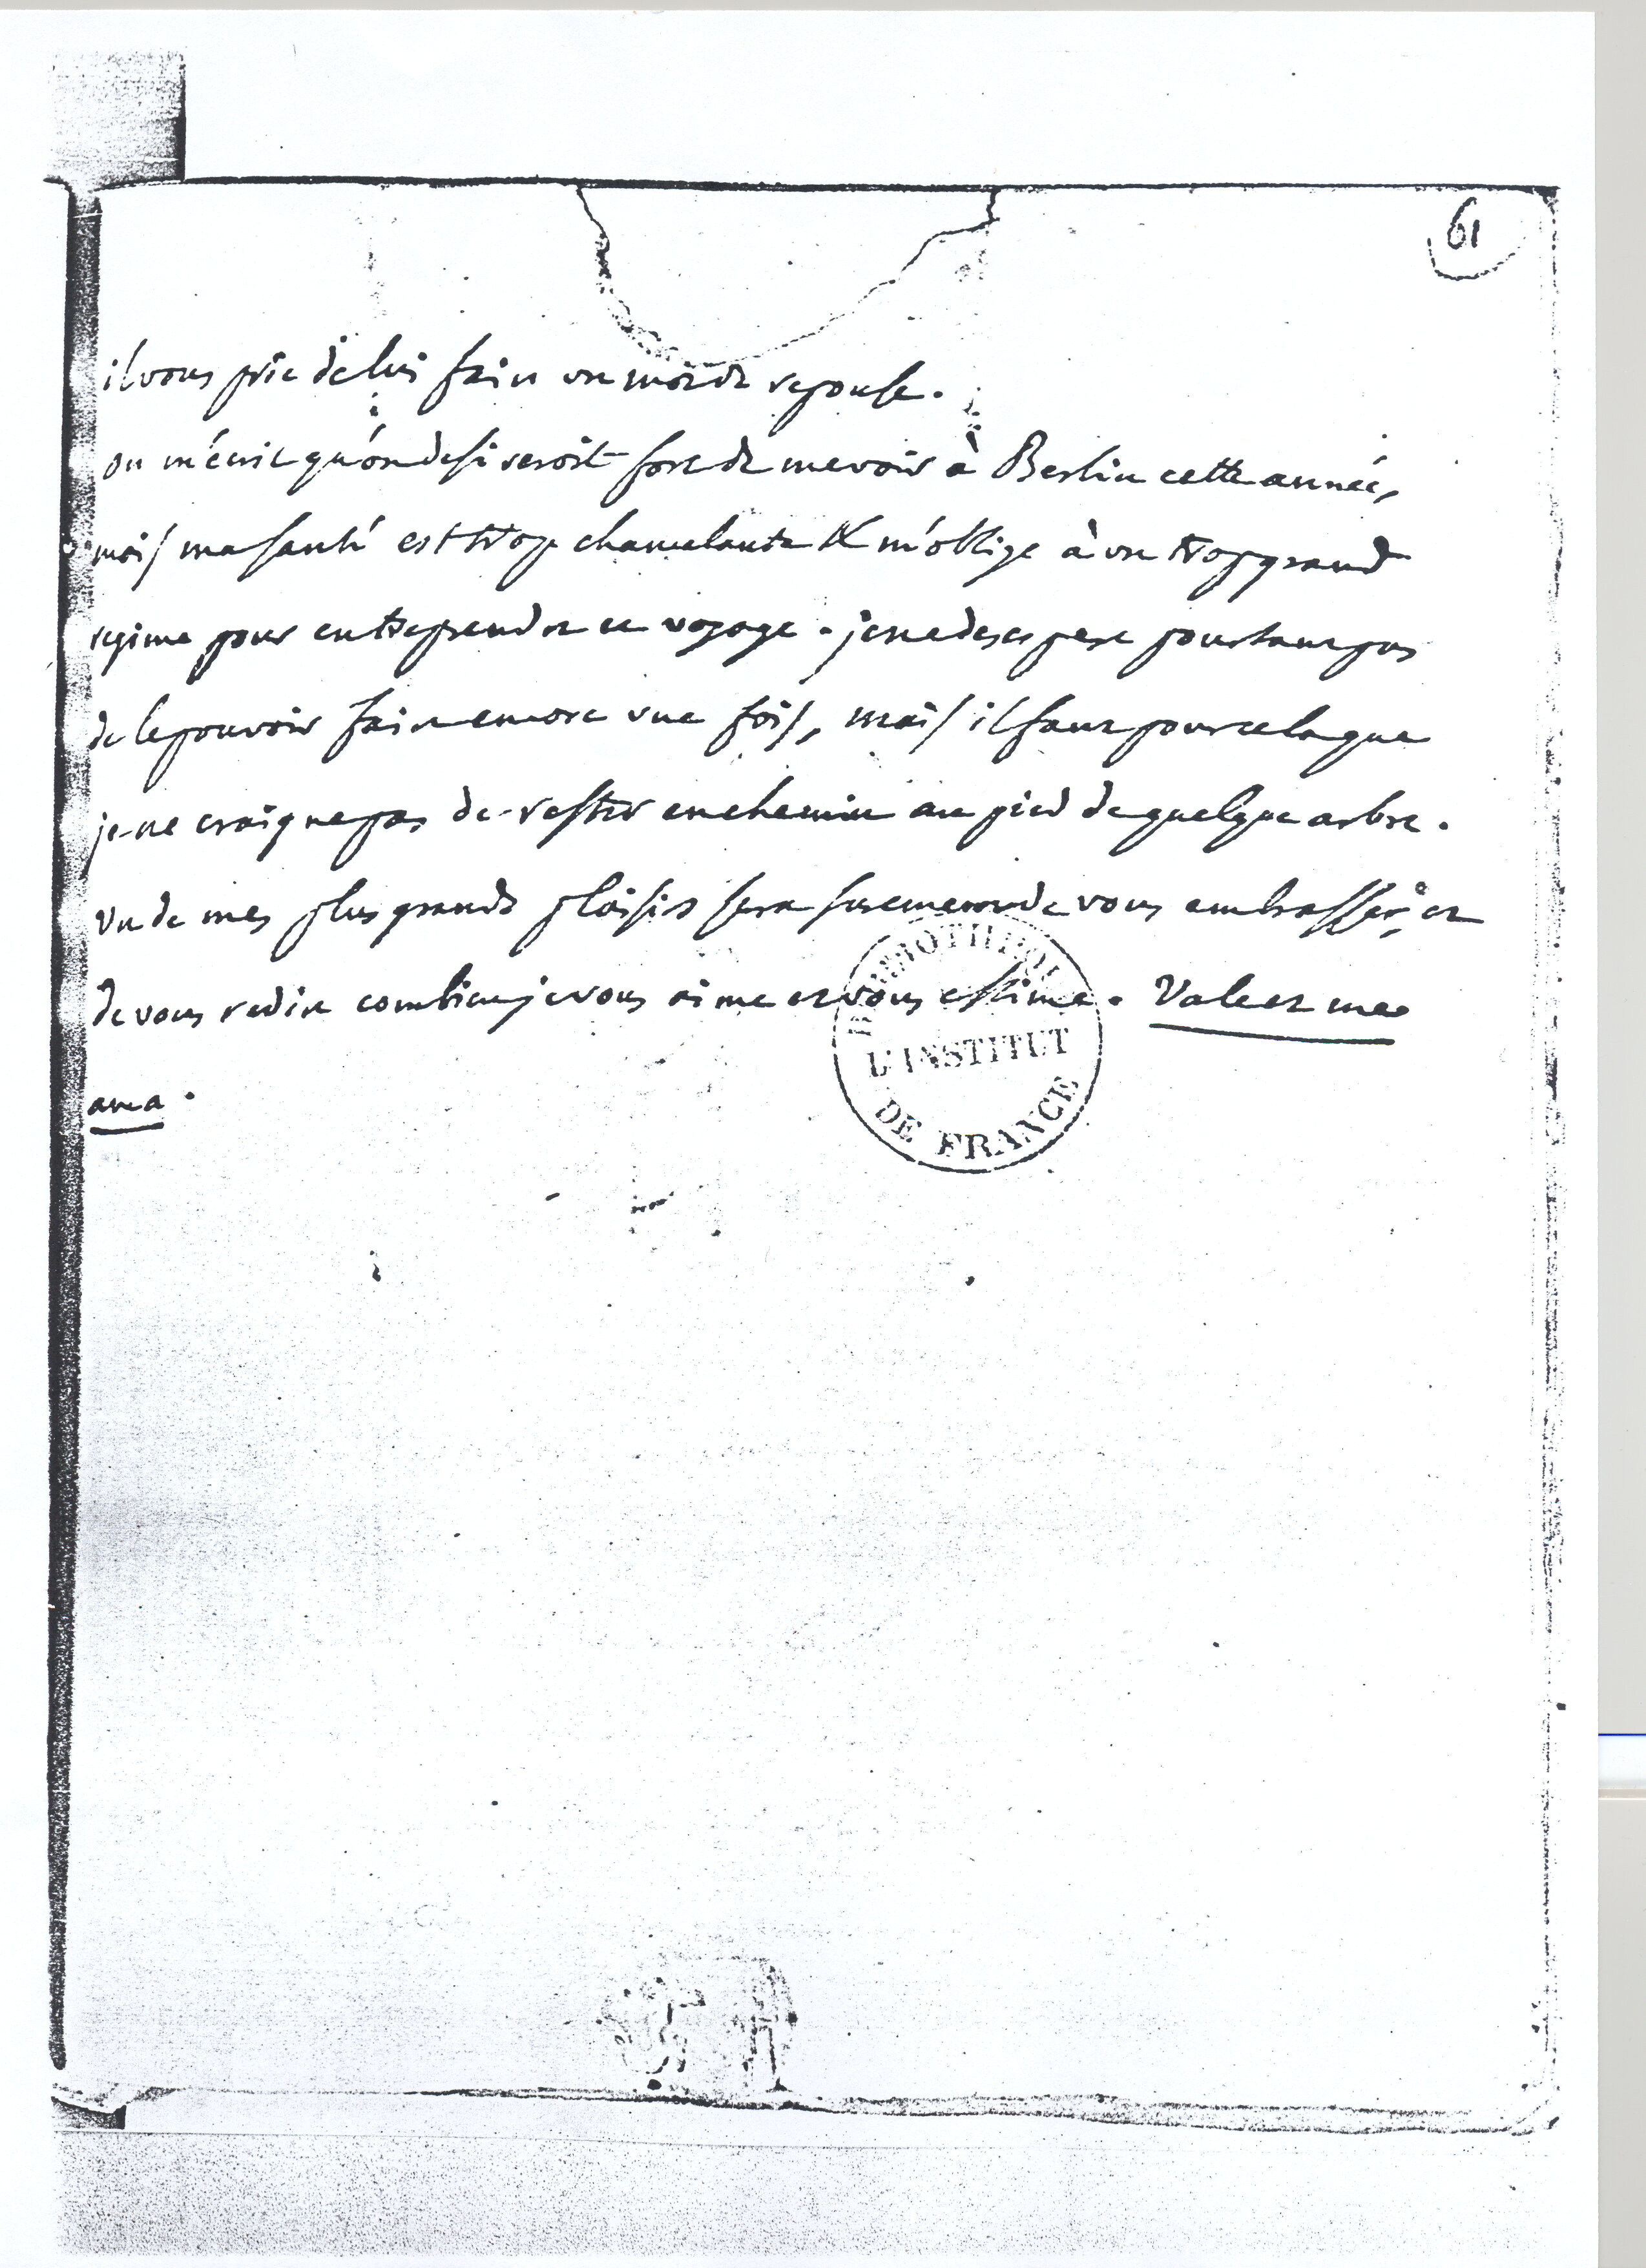 61
il vous prie de lui faire un mot de reponse.
on m'écrit qu'on desireroit fort de me voir à Berlin cette année,
mais ma santé est trop chancelante & m'oblige à un trop grand
regime pour entreprendre ce voyage. je ne desespere pourtant pas
de le pouvoir faire encore une fois, mais il faut pour cela que
je ne craigne pas de rester en chemin au pied de quelque arbre.
un de mes plus grands plaisirs sera surement de vous embrasser, et
de vous redire combien je vous aime et vous estime. Vale et me
ama.
BIBLIOTHEQUE
L'INSTITUT
DE FRANCE